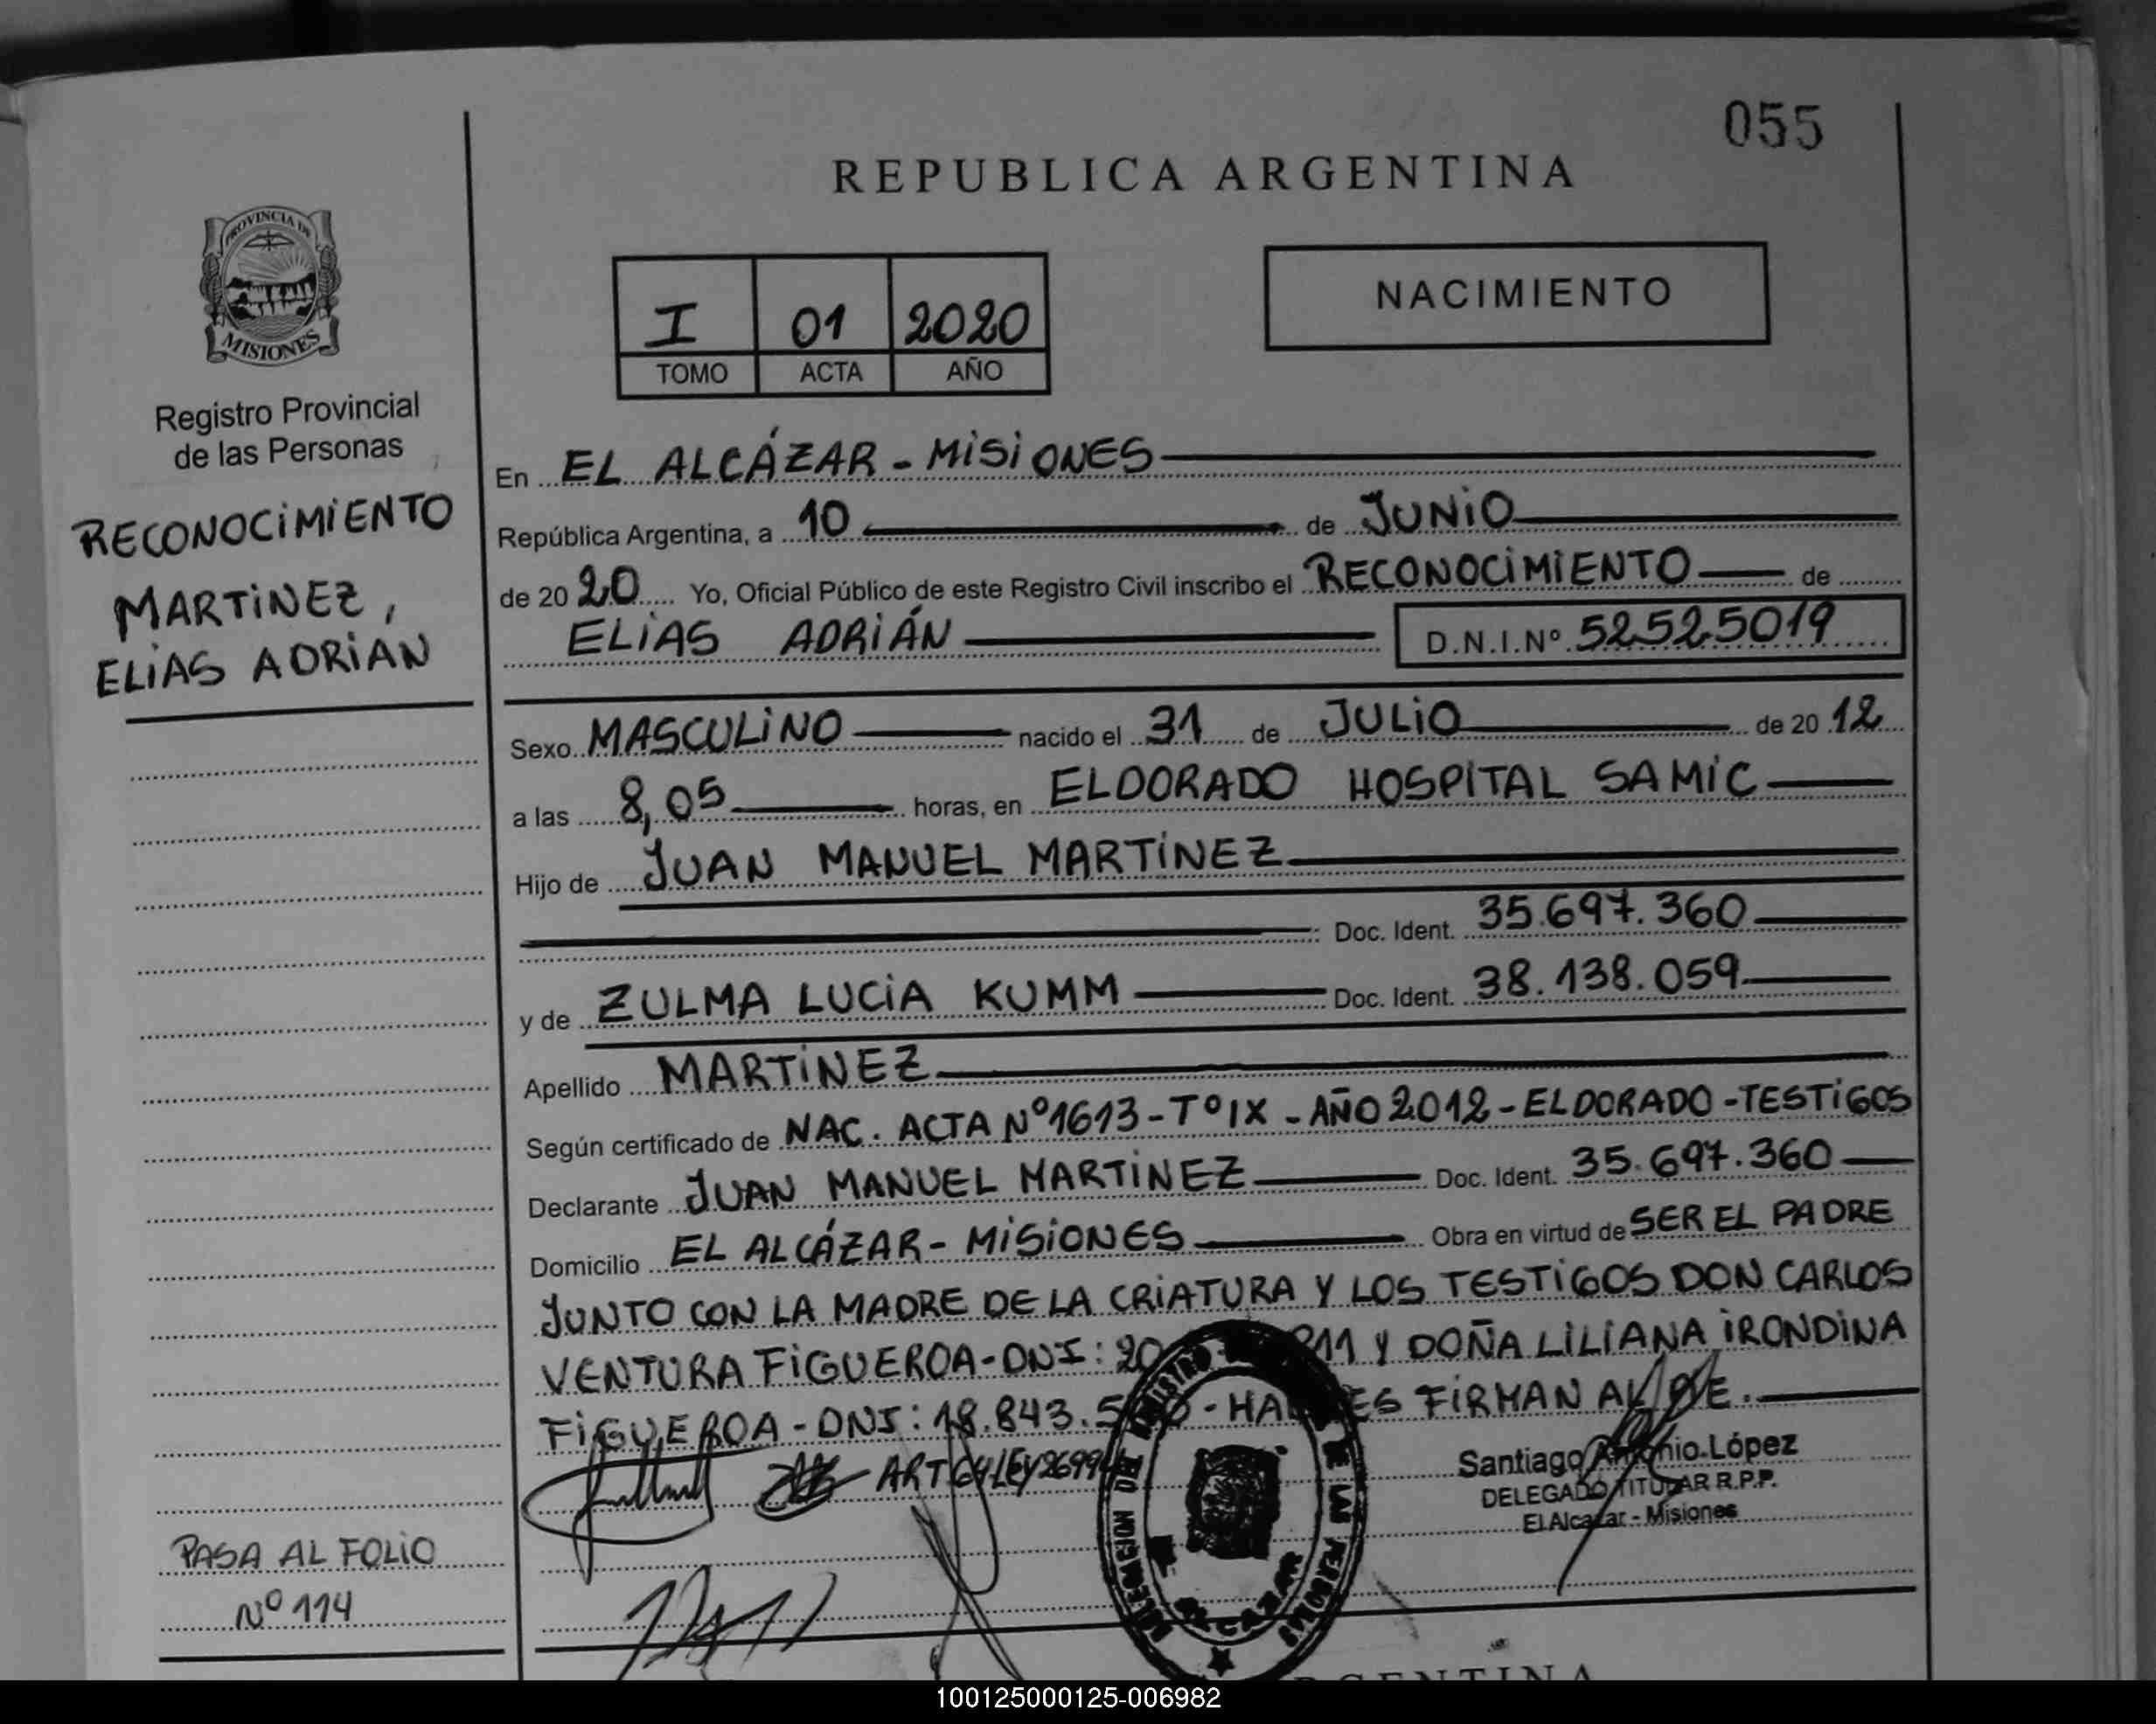 055
REPUBLICA ARGENTINA
PROVINCIA DE
MISIONES
Registro Provincial
de las Personas
RECONOCIMIENTO
MARTINEZ,
ELIAS ADRIAN
PASA AL FOLIO
Nº 114
I 01 2020
TOMO ACTA AÑO
NACIMIENTO
En EL ALCÁZAR - MISIONES
República Argentina, a 10 de JUNIO
de 20 20 Yo, Oficial Público de este Registro Civil inscribo el RECONOCIMIENTO de
ELIAS ADRIÁN D.N.I.Nº 52525019
Sexo MASCULINO nacido el 31 de JULIO de 20 12
a las 8,05 horas, en ELDORADO HOSPITAL SAMIC
Hijo de JUAN MANUEL MARTINEZ
Doc. Ident. 35.697.360
y de ZULMA LUCIA KUMM Doc. Ident. 38.138.059
Apellido MARTINEZ
Según certificado de NAC. ACTA Nº1613 - TºIX - AÑO 2012 - ELDORADO - TESTIGOS
Declarante JUAN MANUEL MARTINEZ Doc. Ident. 35.697.360
Domicilio EL ALCÁZAR - MISIONES Obra en virtud de SER EL PADRE
JUNTO CON LA MADRE DE LA CRIATURA Y LOS TESTIGOS DON CARLOS
VENTURA FIGUEROA - DNI: 20 811 Y DOÑA LILIANA IRONDINA
FIGUEROA - DNI: 18.843. FIRMAN
ART 64 LEY 26994
Santiago Antonio López
DELEGADO TITULAR R.P.P.
El Alcazar - Misiones
DE LAS PERSONAS
100125000125-006982